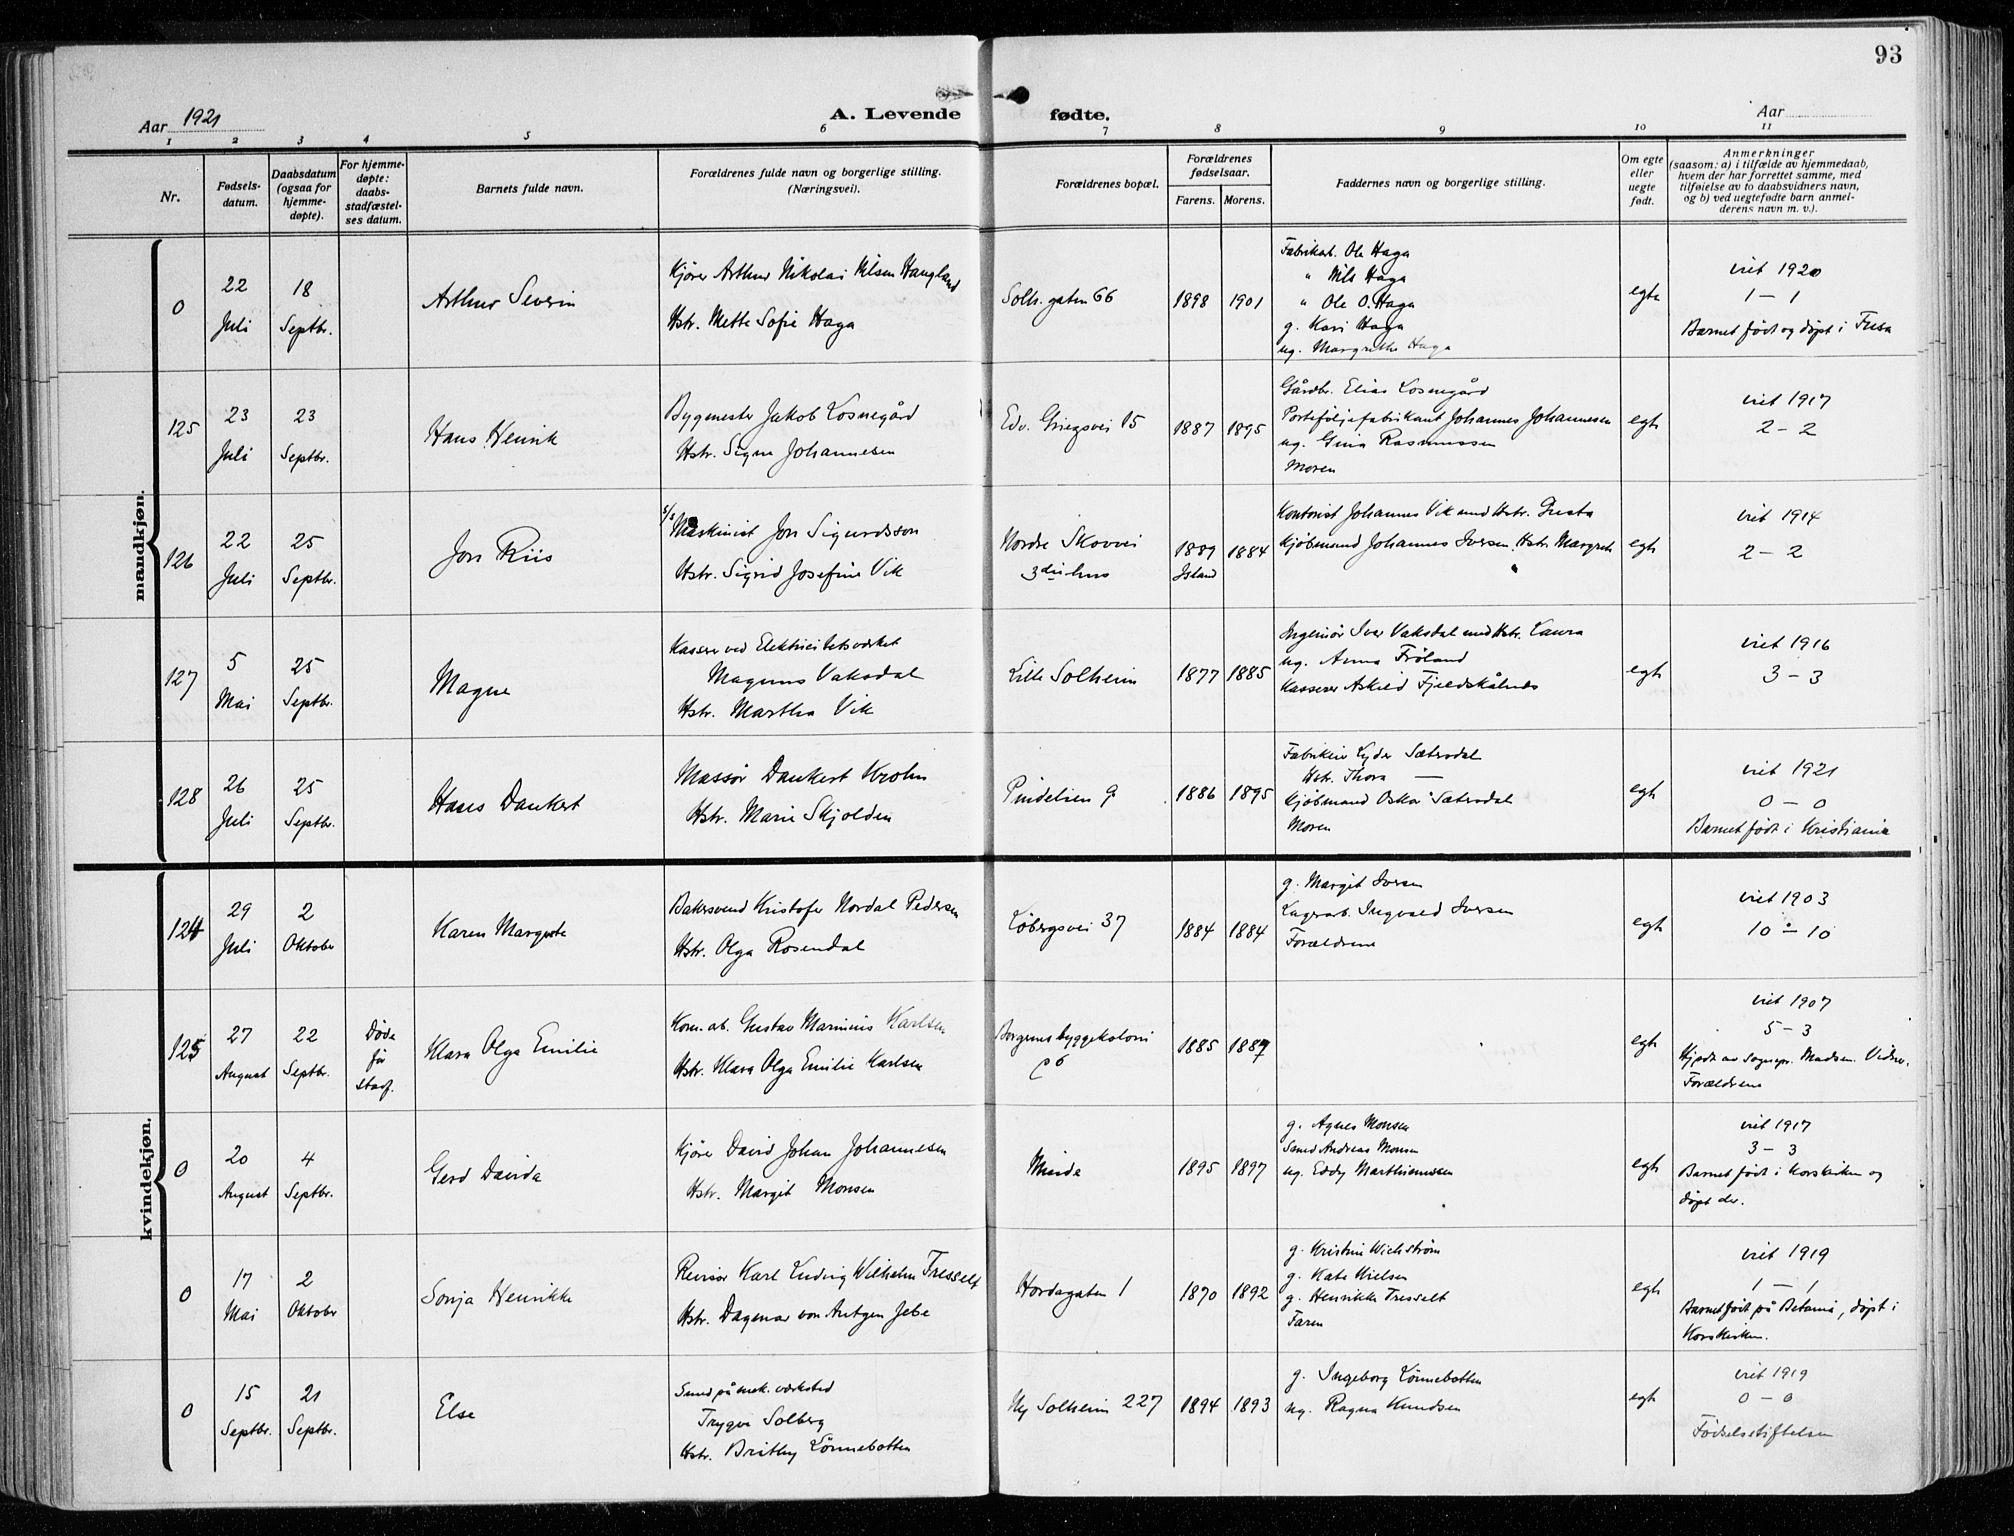 93
Aar 1921
A. Levende fødte.
Aar
1 2 3 4 5 6 7 8 9 10 11
Nr.
Fødsels-
datum.
Daabsdatum
(ogsaa for
hjemme-
døpte).
For hjemme-
døpte:
daabs-
stadfæstel-
ses datum.
Barnets fulde navn.
Forældrenes fulde navn og borgerlige stilling.
(Næringsvei).
Forældrenes bopæl.
Forældrenes
fødselsaar.
Farens. Morens.
Faddernes navn og borgerlige stilling.
Om egte
eller
uegte
født.
Anmerkninger
(saasom: a) i tilfælde av hjemmedaab,
hvem der har forrettet samme, med
tilføielse av to daabsvidners navn,
og b) ved uegtefødte barn anmel-
derens navn m. v.).
mandkjøn.
0
22
Juli
18
Septbr.
Arthur Severin
Kjører Arthur Nikolai Nilsen Haugland
Hstr. Mette Sofie Haga
Solh.gaten 66
1898
1901
Fabrikarb. Ole Haga
" Nils Haga
" Ole O. Haga
g. Kari Haga
ug. Margrethe Haga
egte
viet 1920
1 – 1
Barnet født og døpt i Fusa
125
23
Juli
23
Septbr.
Hans Henrik
Bygmester Jakob Losnegård
Hstr. Signe Johannesen
Edv. Griegsvei 15
1887
1895
Gårdbr. Elias Losnegård
Porteføljefabrikant Johannes Johannesen
ug. Gina Rasmussen
Moren
egte
viet 1917
2 – 2
126
22
Juli
25
Septbr.
Jon Riis
s/s Maskinist Jon Sigurdsson
Hstr. Sigrid Josefine Vik
Nordre Skovvei
3die hus
1889
Island
1884
Kontorist Johannes Vik med Hstr. Gusta
Kjøbmand Johannes Iversen, Hstr. Margrete
egte
viet 1914
2 – 2
127
5
Mai
25
Septbr.
Magne
Kasserer ved Elektricitetsværket
Magnus Vaksdal
Hstr. Martha Vik
Lille Solheim
1877
1885
Ingeniør Iver Vaksdal med Hstr. Laura
ug. Anna Frøland
Kasserer Askild Fjeldskålnes
egte
viet 1916
3 – 3
128
26
Juli
25
Septbr.
Hans Dankert
Massør Dankert Krohn
Hstr. Marie Skjolden
9
1886
1895
Fabrikeier Lyder Sætersdal
Hstr. Thora —
Kjøbmand Oskar Sætersdal
Moren
egte
viet 1921
0 – 0
Barnet født i Kristiania
kvindekjøn.
124
29
Juli
2
Oktober
Karen Margrete
Bakersvend Kristofer Nordal Pedersen
Hstr. Olga Rosendal
Løbergsvei 37
1884
1884
g. Margit Iversen
Lagerarb. Ingvald Iversen
Forældrene
egte
viet 1903
10 – 10
125
27
August
22
Septbr.
Døde
før
stadf.
Klara Olga Emilie
Kom. ab. Gustav Marinius Karlsen
Hstr. Klara Olga Emilie Karlsen
Borgernes byggekoloni
p 6
1885
1887
egte
viet 1907
5 – 3
Hjdt av sognepr. Madsen. Vidner.
Forældrene
0
20
August
4
Septbr.
Gerd Davida
Kjører David Johan Johannesen
Hstr. Margit Monsen
Minde
1895
1897
g. Agnes Monsen
Smed Andreas Monsen
ug. Eddy Marthiniussen
egte
viet 1917
3 – 3
Barnet født i Korskirken og
døpt der.
0
17
Mai
2
Oktober
Sonja Henrikke
Revisor Karl Ludvig Wilhelm Tresselt
Hstr. Dagmar von Antgen Jebe
Hordagaten 1
1870
1892
g. Kristine Wickstrøm
g. Kate Nielsen
g. Henrikke Tresselt
Faren
egte
viet 1919
1 – 1
Barnet født på Betania, døpt i
Korskirken.
0
15
Septbr.
21
Septbr.
Else
Smed på mek. værksted
Trygve Solberg
Hstr. Brithy Lönnebotten
Ny Solheim 227
1894
1893
g. Ingeborg Lönnebotten
ug. Ragna Knudsen
egte
viet 1919
0 – 0
Fødselsstiftelsen